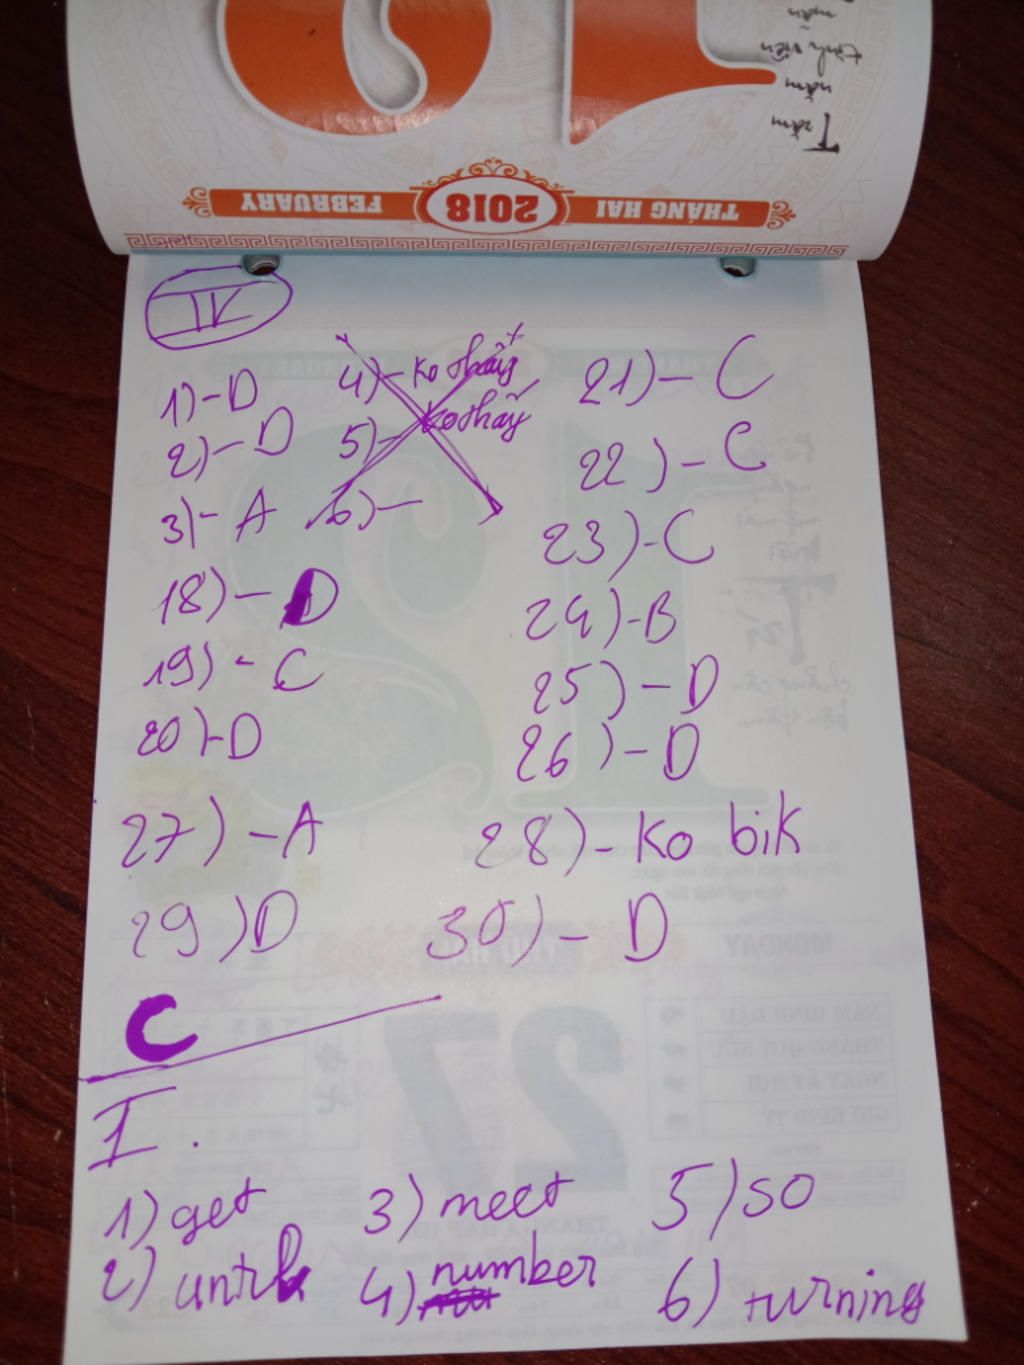 Trăm
năm
tình viên
mãn
THÁNG HAI 2018 FEBRUARY
IV
1)-D 4)-ko thấy 21)-C
2)-D 5)- ko thấy 22)-C
3)-A 6)- 23)-C
18)-D 24)-B
19)-C 25)-D
20)-D 26)-D
27)-A 28)-ko bik
29)D 30)-D
C
I.
1) get 3) meet 5) so
2) until 4) number 6) turning